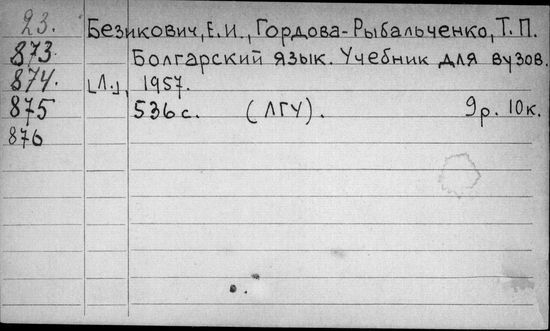 23. Безикович, Е. И., Гордова-Рыбальченко, Т. П.
873 Болгарский язык. Учебник для вузов.
874. [Л.], 1957.
875 536 с. (ЛГУ). 9 р. 10 к.
876